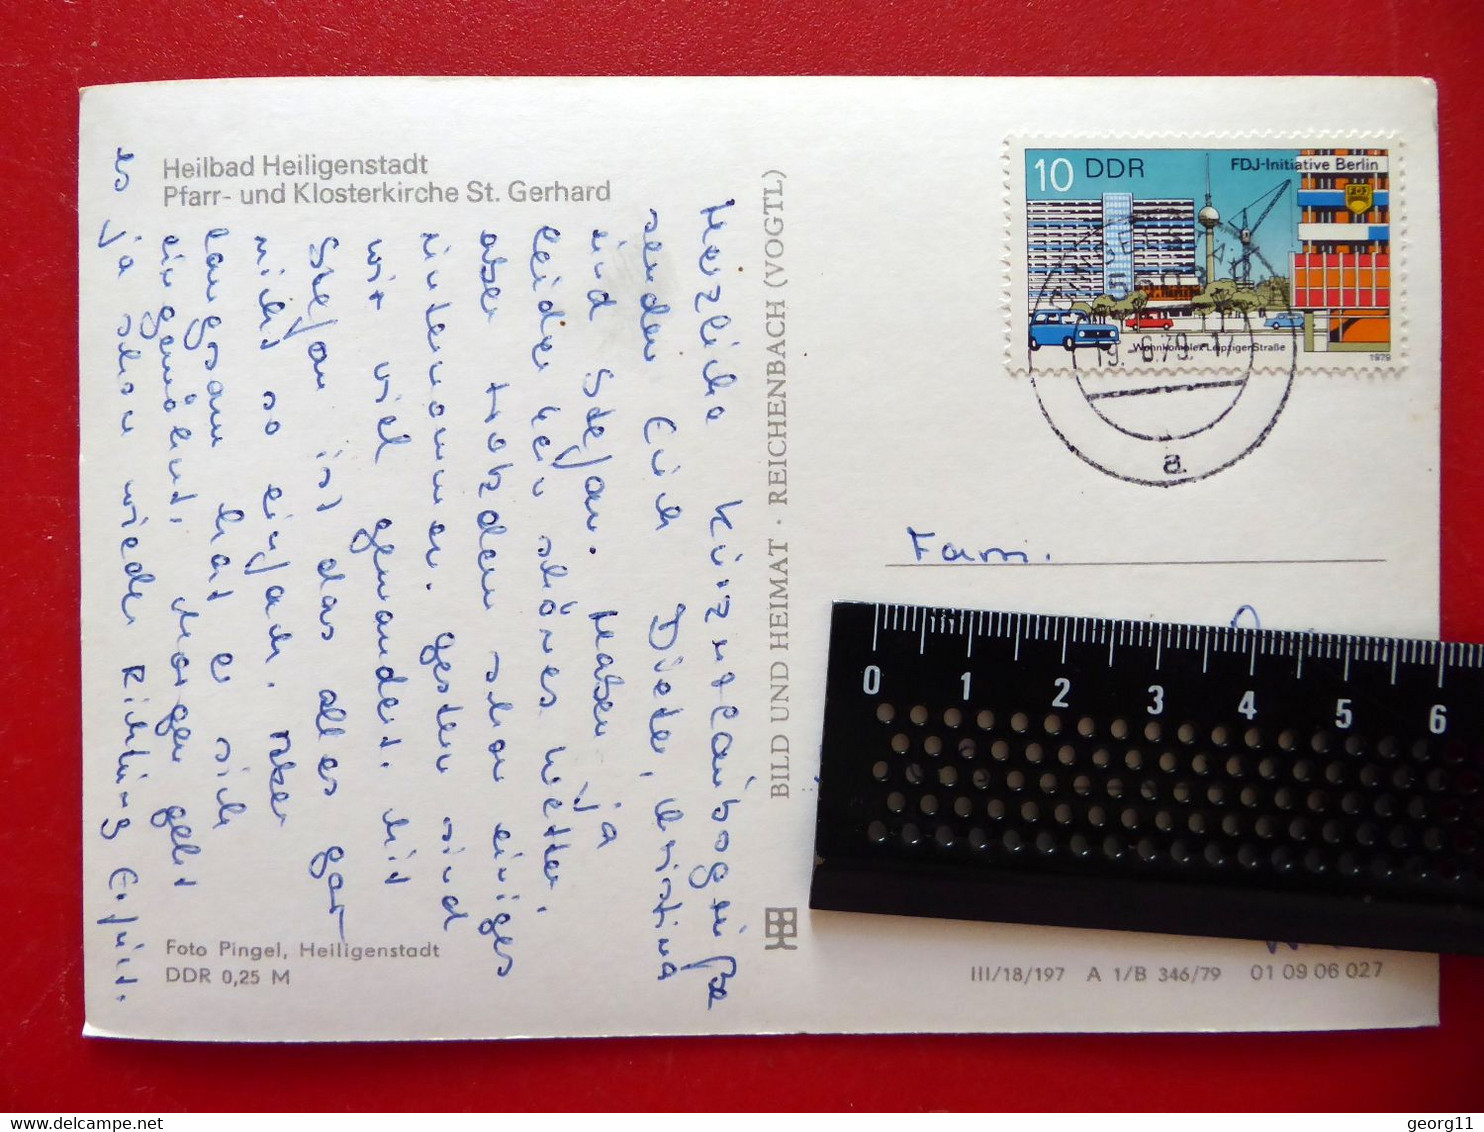 Heilbad Heiligenstadt
Pfarr- und Klosterkirche St. Gerhard
Herzliche Kurzurlaubsgrüße
senden Euch Dieter, Christina
und Stefan. Haben ja
leider kein schönes Wetter,
aber trotzdem schon einiges
unternommen. Gestern sind
wir viel gewandert. Mit
Stefan ist das alles gar
nicht so einfach. Aber
langsam hat er sich
eingewöhnt. Morgen geht
es ja schon wieder Richtung Erfurt.
Foto Pingel, Heiligenstadt
DDR 0,25 M
BILD UND HEIMAT · REICHENBACH (VOGTL)
10 DDR
FDJ-Initiative Berlin
Wohnkomplex Leipziger Straße
1979
19.-6.79.-17
a
Fam.
0 1 2 3 4 5 6
III/18/197 A 1/B 346/79 01 09 06 027
delcampe.net
georg11